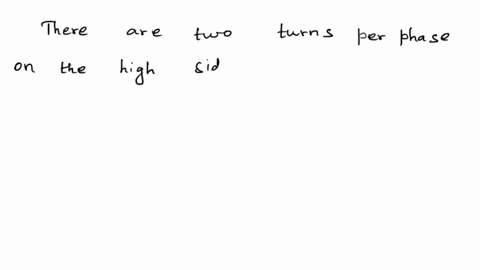 There are two turns per phase
on the high sid